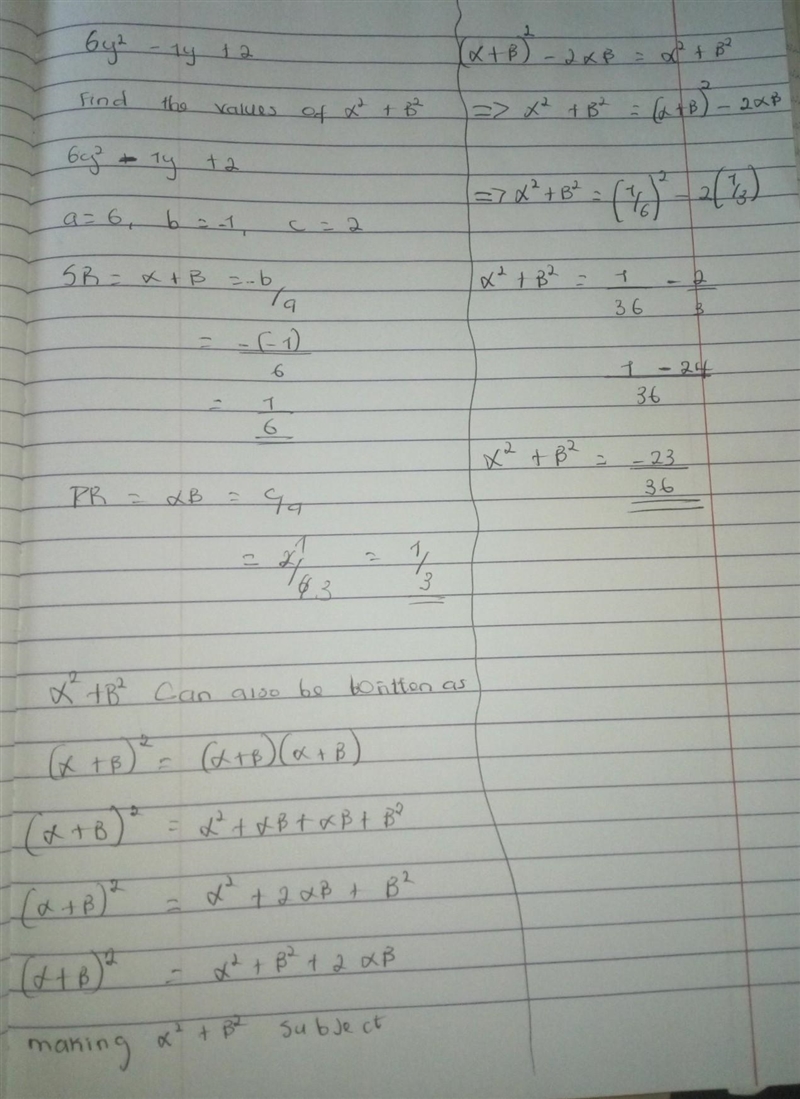 6y² - 1y + 2
Find the values of α² + β²
6y² - 1y + 2
a = 6, b = -1, c = 2
SR = α + β = -b/a
= -(-1)/6
= 1/6
PR = αβ = c/a
= 2/6 1 3 = 1/3
α² + β² Can also be written as
(α + β)² = (α+β)(α+β)
(α + β)² = α² + αβ + αβ + β²
(α + β)² = α² + 2αβ + β²
(α + β)² = α² + β² + 2αβ
making α² + β² subject
(α + β)² - 2αβ = α² + β²
=> α² + β² = (α+β)² - 2αβ
=> α² + β² = (1/6)² - 2(1/3)
α² + β² = 1/36 - 2/3
1 - 24/36
α² + β² = -23/36